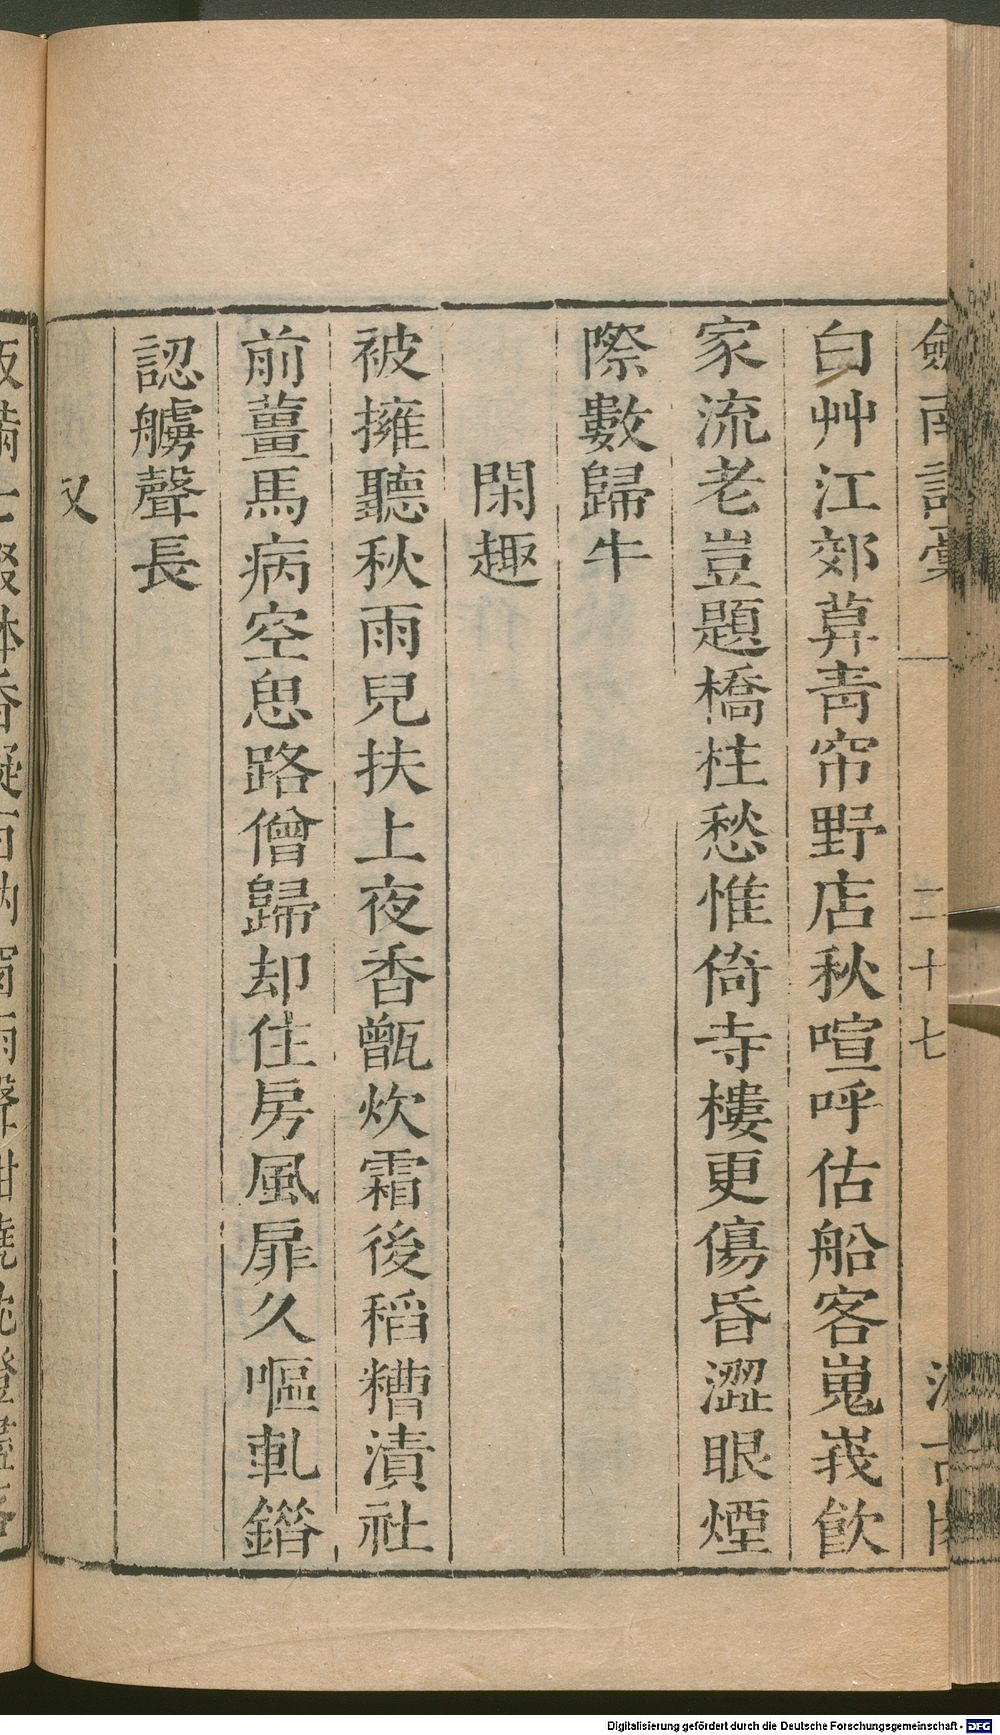 劍南詩稾
二十七
白艸江郊萛靑帘野店秋喧呼估船客嵬峩飮
家流老豈題橋柱愁惟倚寺樓更傷昏澀眼煙
際數歸牛
閑趣
被擁聽秋雨兒扶上夜香甑炊霜後稻糟漬社
前薑馬病空思路僧歸却住房風扉久嘔軋錯
認艣聲長
又
Digitalisierung gefördert durch die Deutsche Forschungsgemeinschaft - DFG